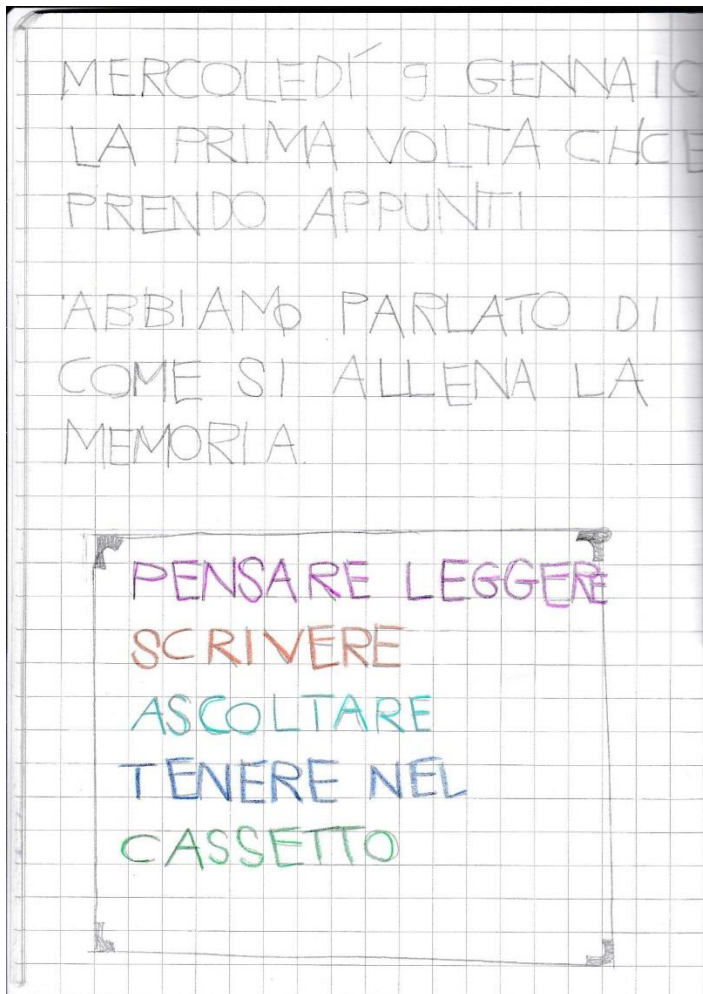 MERCOLEDÍ 9 GENNAIO
LA PRIMA VOLTA CHCE
PRENDO APPUNTI
ABBIAMO PARLATO DI
COME SI ALLENA LA
MEMORIA.
PENSARE LEGGERE
SCRIVERE
ASCOLTARE
TENERE NEL
CASSETTO